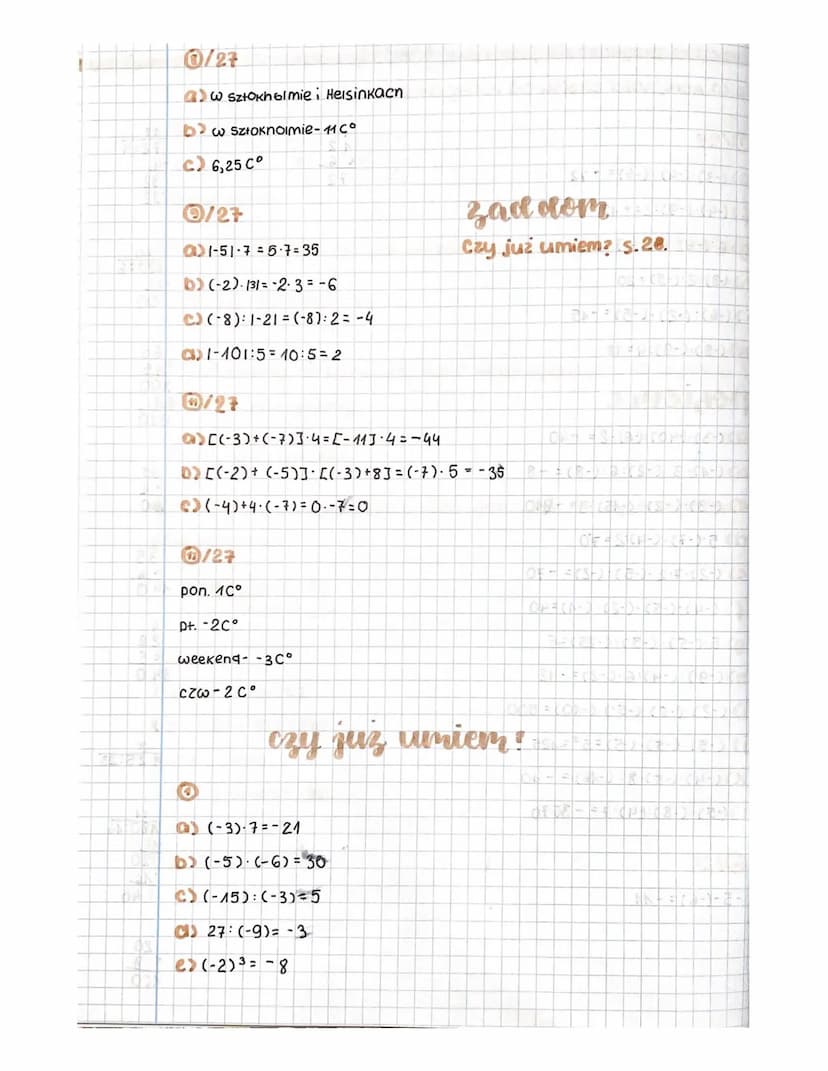 ⑦/27
a) w sztokholmie i Helsinkach
b) w sztokholmie - 11 C°
c) 6,25 C°
⑨/27
zad dom
Czy już umiem? s.28.
a) |-5|·7 = 5·7 = 35
b) (-2)·|3| = -2·3 = -6
c) (-8):|-2| = (-8):2 = -4
d) |-10|:5 = 10:5 = 2
⑪/27
a) [(-3)+(-7)]·4 = [-11]·4 = -44
b) [(-2)+(-5)]·[(-3)+8] = (-7)·5 = -35
c) (-4)+4·(-7) = 0·-7 = 0
⑫/27
pon. 1C°
pt. -2C°
weekend- -3C°
czw - 2 C°
czy już umiem?
①
a) (-3)·7 = -21
b) (-5)·(-6) = 30
c) (-15):(-3) = 5
d) 27:(-9) = -3
e) (-2)³ = -8